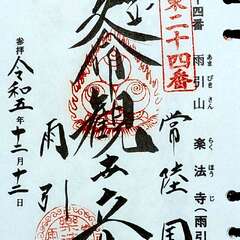 十四番　雨引山　楽法寺（雨引
あまびきさん　らくほうじ
東二十四番
常陸国
命観世音
雨引
参拝　令和五年十二月十二日